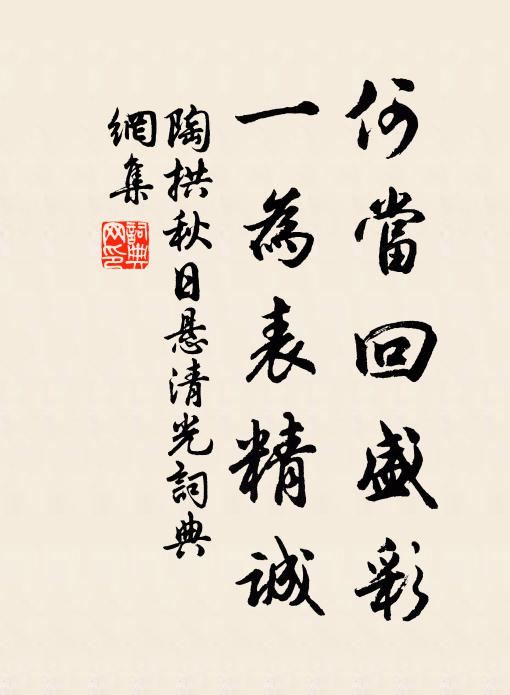 何當回盛彩
一為表精誠
陶拱秋日悬清光詞典
網集
詞典
网印